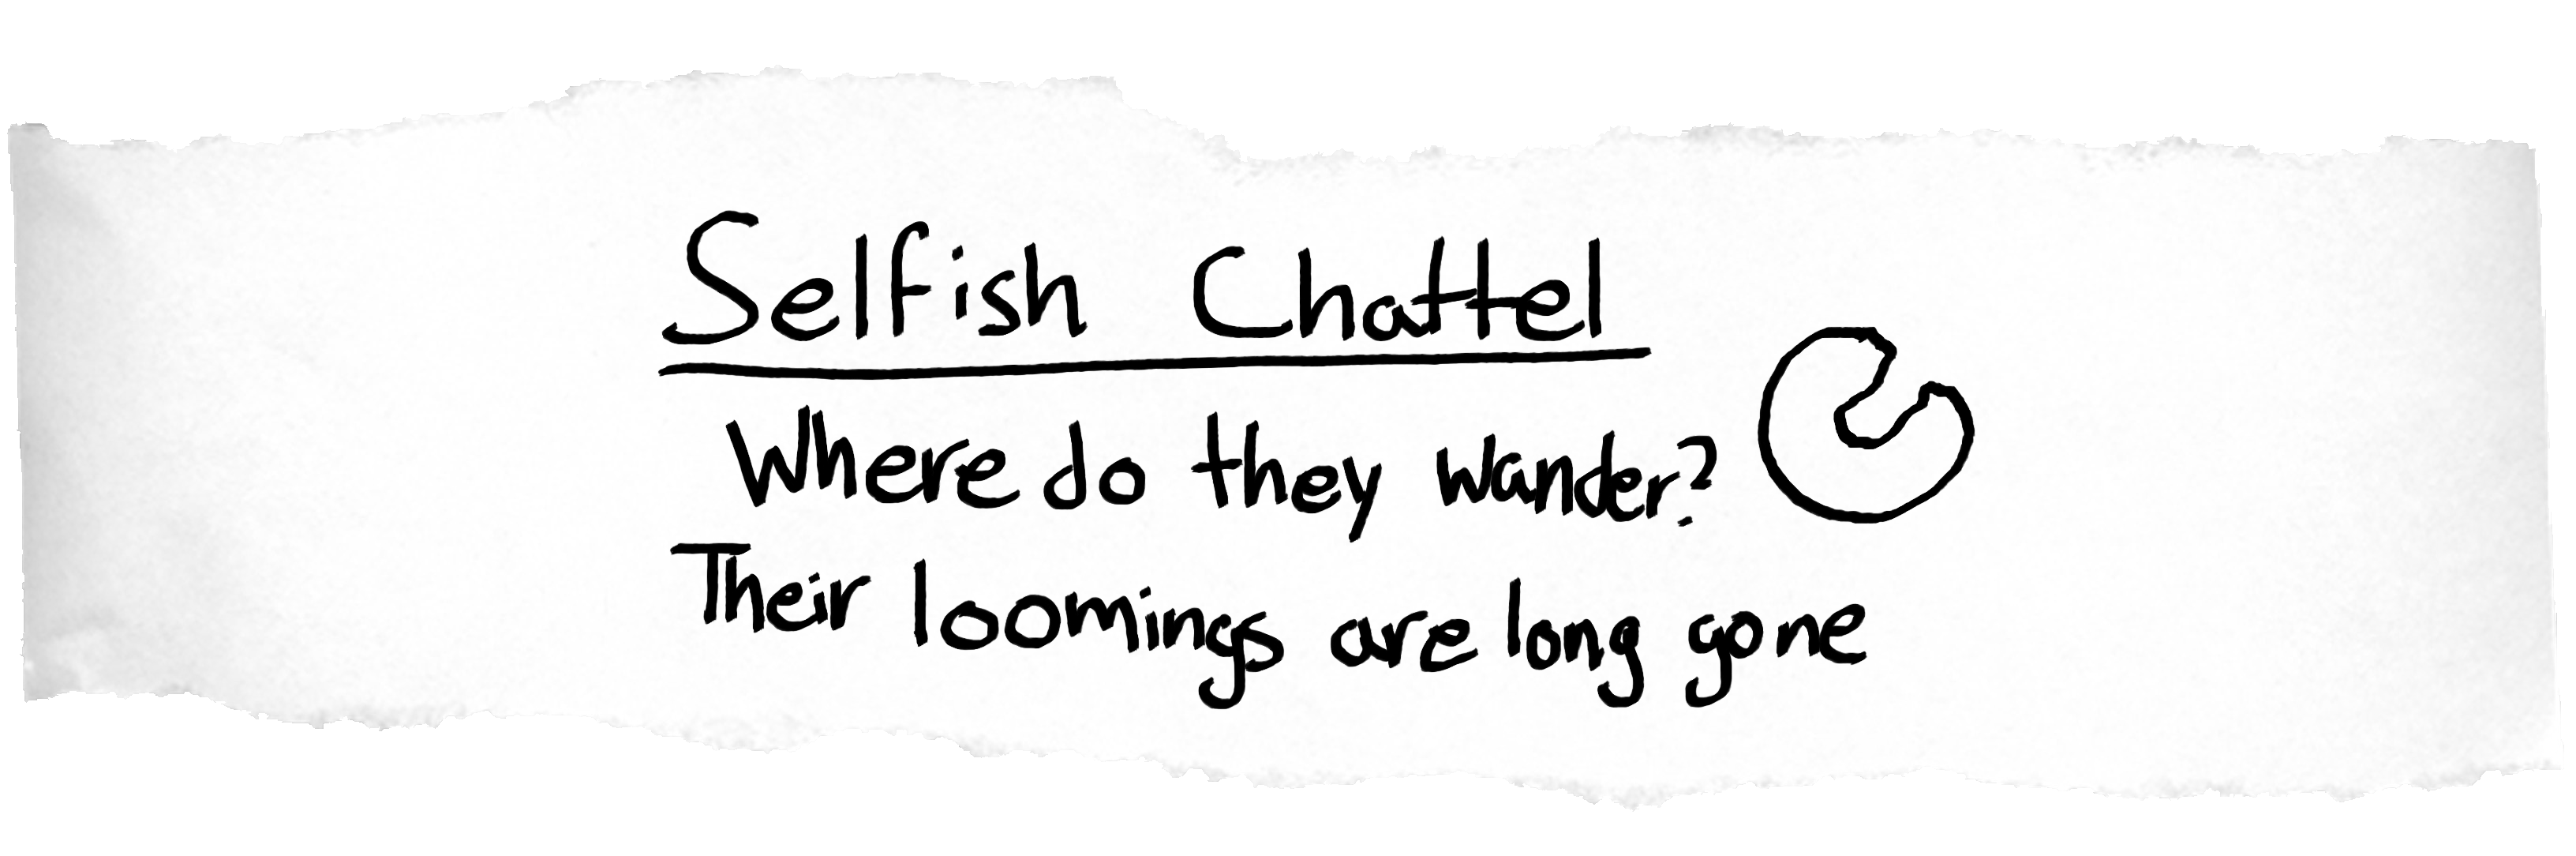 Selfish Chattel
Where do they wander?
Their loomings are long gone